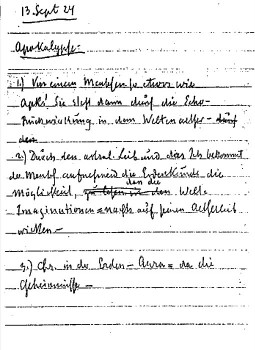 13. Sept 24
Apokalypse:
1.) Von einem Menschen so etwas wie
Apok. Sie stellt dann durch die
Rückwirkung in dem Weltenaether – durch
den
2.) Durch den astral. Leib und das Ich bekommt
der Mensch aufnehmend die Erdenkunde die
Möglichkeit, den die den Welt-
Imaginationen nachts auf seinen Aetherleib
wirken –
3.) Chr. in der Erden-Aura = da die
Geheimnisse –